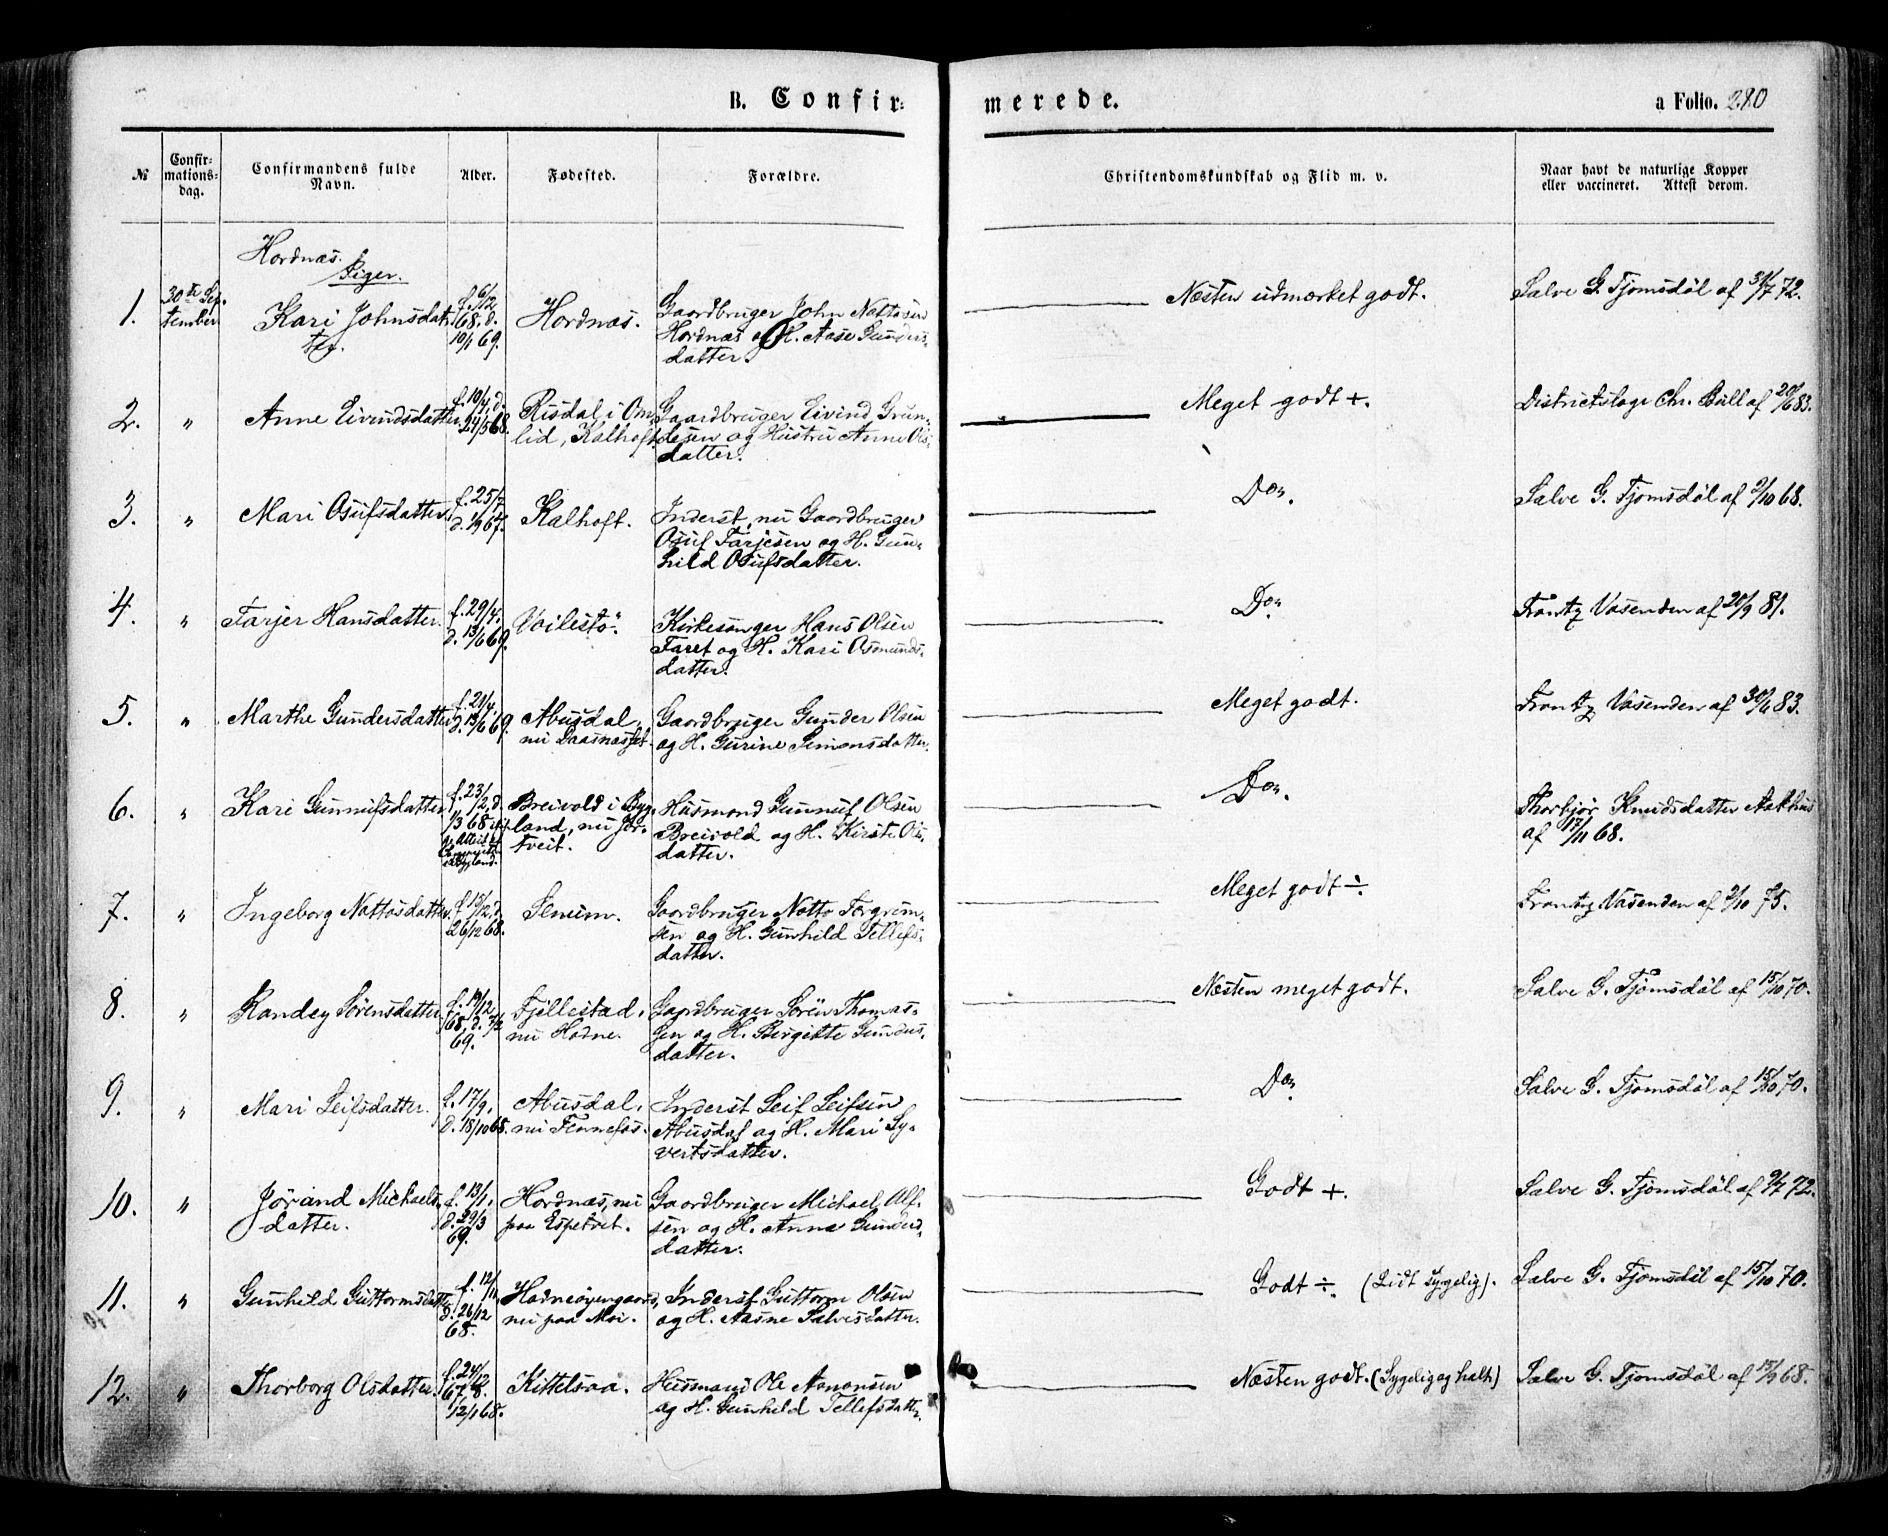 B. Confir=
merede.
a Folio. 280
№
Confir=
mations=
dag.
Confirmandens fulde
Navn.
Alder.
Fødested.
Forældre.
Christendomskundskab og Flid m. v.
Naar havt de naturlige Kopper
eller vaccineret. Attest derom.
Hordnæs.
Piger.
1.
30te Sep-
tember
Kari Johnsdat-
ter.
f. 6/12
68. d.
10/1 69.
Hordnæs.
Gaardbruger John Nottosen
Hordnæs og H. Aase Gunders-
datter.
Næsten udmærket godt.
Salve G. Tjomsdøl af 31/7 72.
2.
"
Anne Eivindsdatter
f. 10/4, d.
24/5 68.
Risdal i Om-
lid, Kalhoft.
Gaardbruger Eivind Grun-
desen og Hustru Anne Ols-
datter.
Meget godt +.
Districtslæge Chr. Bull af 20/6 83.
3.
"
Mari Osufsdatter
f. 25/7
d. 1/9 67.
Kalhoft.
Inderst, nu Gaardbruger
Osuf Tarjesen og H. Gun-
hild Osufsdatter.
Do.
Salve G. Tjomsdøl af 2/10 68.
4.
"
Tarjer Hansdatter.
f. 29/4.
d. 13/6 69.
Voilestø.
Kirkesanger Hans Olsen
Faret og H. Kari Osmunds-
datter.
Do.
Frantz Vasenden af 20/9 81.
5.
"
Marthe Gundersdatter
f. 21/4.
d. 13/6 69.
Abusdal,
nu Laasnæsset.
Gaardbruger Gunder Olsen
og H. Gurine Simonsdatter.
Meget godt.
Frantz Vasenden af 30/6 83.
6.
"
Kari Gunnufsdatter
f. 23/
/2, d.
1/3 68
Breivold i Byg-
land, nu Jor-
tveit.
Husmand Gunnuf Olsen
Breivold og H. Kirsti Ols-
datter.
Do.
Thorbjør Knudsdatter Aakhus
af 17/11 68.
7.
"
Ingeborg Nottosdatter
f. 15/12, d.
26/12 68.
Senum.
Gaardbruger Notto Torgrim-
sen og H. Gunhild Tellefs-
datter.
Meget godt ÷.
Frantz Vasenden af 2/10 75.
8.
"
Randey Sørensdatter
f. 19/12
68, d. 7/2
69.
Fjellestad,
nu Hodne.
Gaardbruger Søren Thomas-
sen og H. Birgitte Gunders-
datter.
Næsten meget godt.
Salve G. Tjomsdøl af 15/10 70.
9.
"
Mari Leifsdatter.
f. 17/9,
d. 18/10 68.
Abusdal,
nu Fennefos.
Inderst Leif Leifsen
Abusdal og H. Mari Sy-
vertsdatter.
Do.
Salve G. Tjomsdøl af 15/10 70.
10.
"
Jørand Michaels-
datter.
f. 13/1,
d. 29/3
69.
Hordnæs, nu
paa Espetvet.
Gaardbruger Michael Olf-
sen og H. Anne Gunders-
datter.
Godt +.
Salve G. Tjomsdøl af 9/7 72.
11.
"
Gunhild Guttormsdatter
f. 12/11,
d. 26/12
68.
Hodneøyengaard,
nu paa Moi.
Inderst Guttorm Olsen
og H. Aasne Salvesdatter.
Godt ÷. (Lidt sygelig).
Salve G. Tjomsdøl af 15/10 70.
12.
"
Thorborg Olsdatter.
f. 24/12
67
12/1 68.
Kittelsaa.
Husmand Ole Aanonsen
og H. Gunhild Tellefsdatter.
Næsten godt. (Sygelig og halt)
Salve G. Tjomsdøl af 15/9 68.